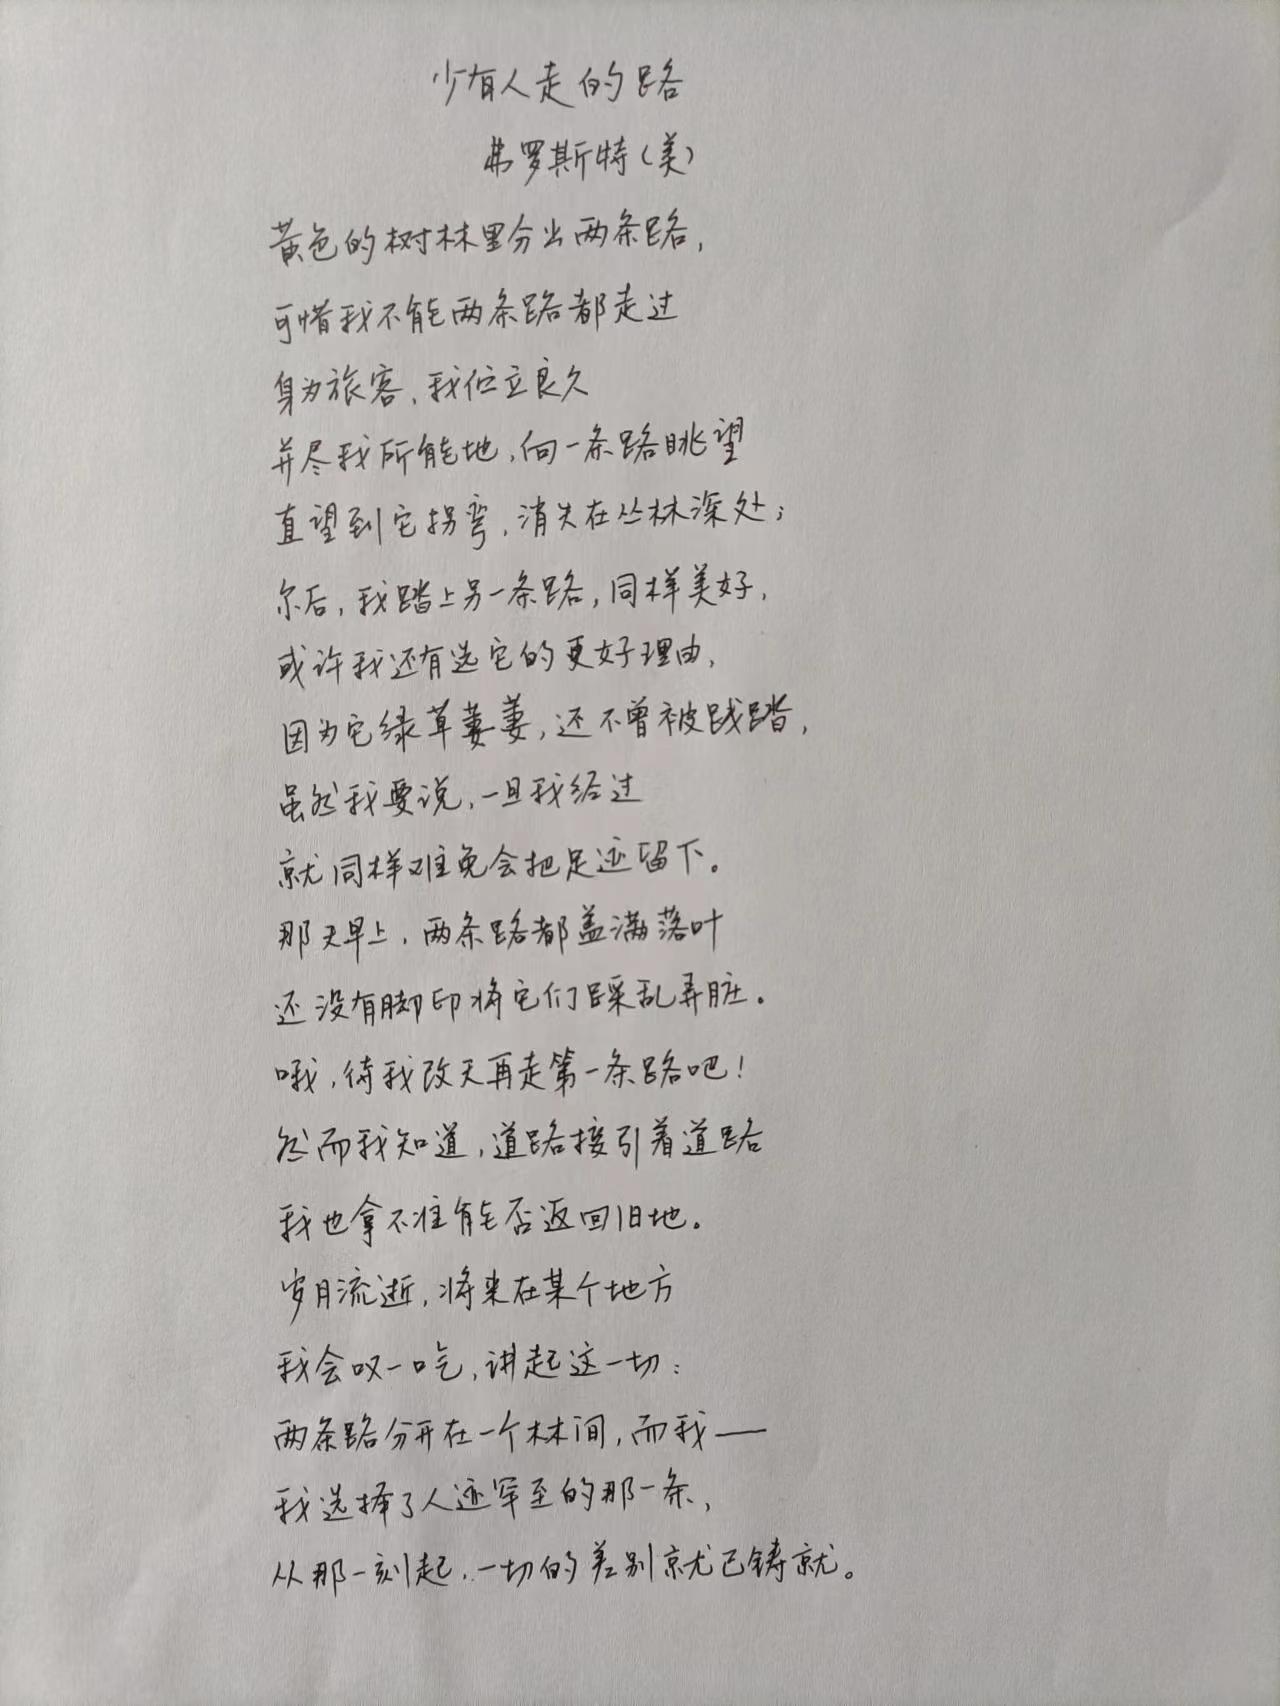 少有人走的路
弗罗斯特（美）
黄色的树林里分出两条路，
可惜我不能两条路都走过
身为旅客，我伫立良久
并尽我所能地，向一条路眺望
直望到它拐弯，消失在丛林深处；
尔后，我踏上另一条路，同样美好，
或许我还有选它的更好理由，
因为它绿草萋萋，还不曾被践踏，
虽然我要说，一旦我经过
就同样难免会把足迹留下。
那天早上，两条路都盖满落叶
还没有脚印将它们踩乱弄脏。
哦，待我改天再走第一条路吧！
然而我知道，道路接引着道路
我也拿不准能否返回旧地。
岁月流逝，将来在某个地方
我会叹一口气，讲起这一切：
两条路分开在一个林间，而我——
我选择了人迹罕至的那一条，
从那一刻起，一切的差别就已铸就。